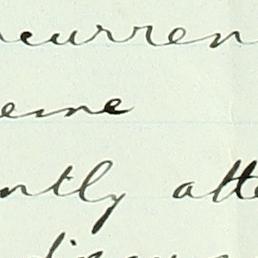 curren
eme
ntly atte